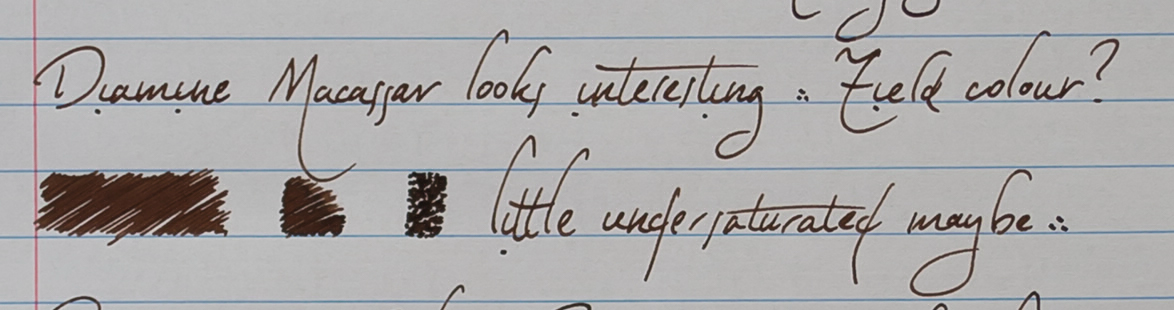 Diamine Macassar looks interesting ∴ Field colour?
little undersaturated maybe ∴